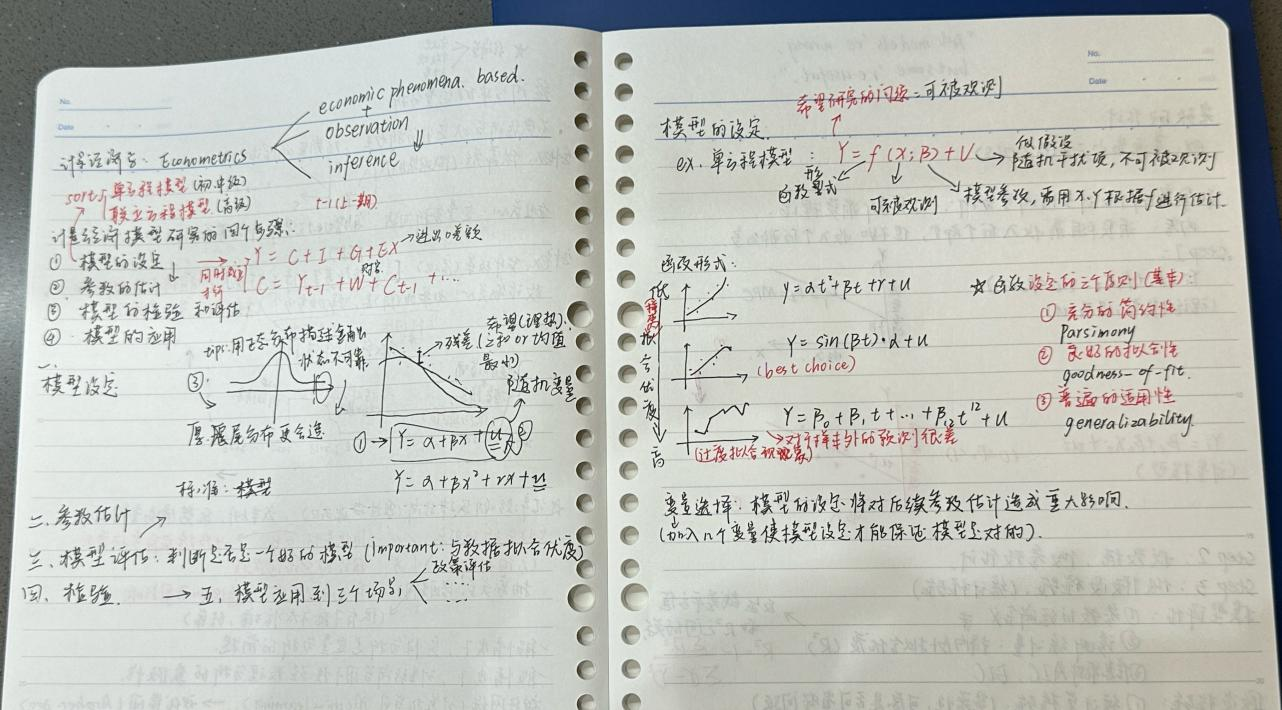 No.
Date
economic phenomena. based.
+
observation
inference
计量经济学: Econometrics
sort: 单方程模型 (初.中级)
联立方程模型 (高级)
t-1 (上一期)
计量经济学模型研究的四个步骤:
① 模型的设定
② 参数的估计
③ 模型的检验和评估
④ 模型的应用
Y = C + I + G + EX → 进出口差额
C = Y_{t-1} + W + C_{t-1} + ...
财富
tips: 用正态分布描述金融
状态不可靠
一.
模型设定
③
厚尾分布更合适
希望(理想):
残差 (之和 or 均值
最小)
随机变量
① → Y = α + βx + u
②
Y = α + βx² + rx + u
标准: 模型
二. 参数估计
三. 模型评估: 判断是否是一个好的模型 (important: 与数据拟合优度)
四. 检验. → 五. 模型应用到三个场景
政策评估
....
No.
Date
希望研究的问题 = 可被观测
模型的设定.
ex. 单方程模型: Y = f (X; β) + U
做假设
随机干扰项, 不可被观测
函数形式
可被观测
模型参数, 需用 X. Y 根据 f 进行估计.
函数形式:
低
拟合优度
高
Y = αt² + βt + r + u
Y = sin (βt) · α + u
(best choice)
Y = β₀ + β₁ t + ... + β₁₂ t¹² + u
对于样本外的预测很差
(过度拟合现象)
☆ 函数设定的三个原则 (基本)
① 充分的简约性
Parsimony
② 良好的拟合性
goodness-of-fit.
③ 普遍的适用性
generalizability.
变量选择: 模型的设定将对后续参数估计造成重大影响.
(加入几个变量使模型设定才能保证模型是对的).